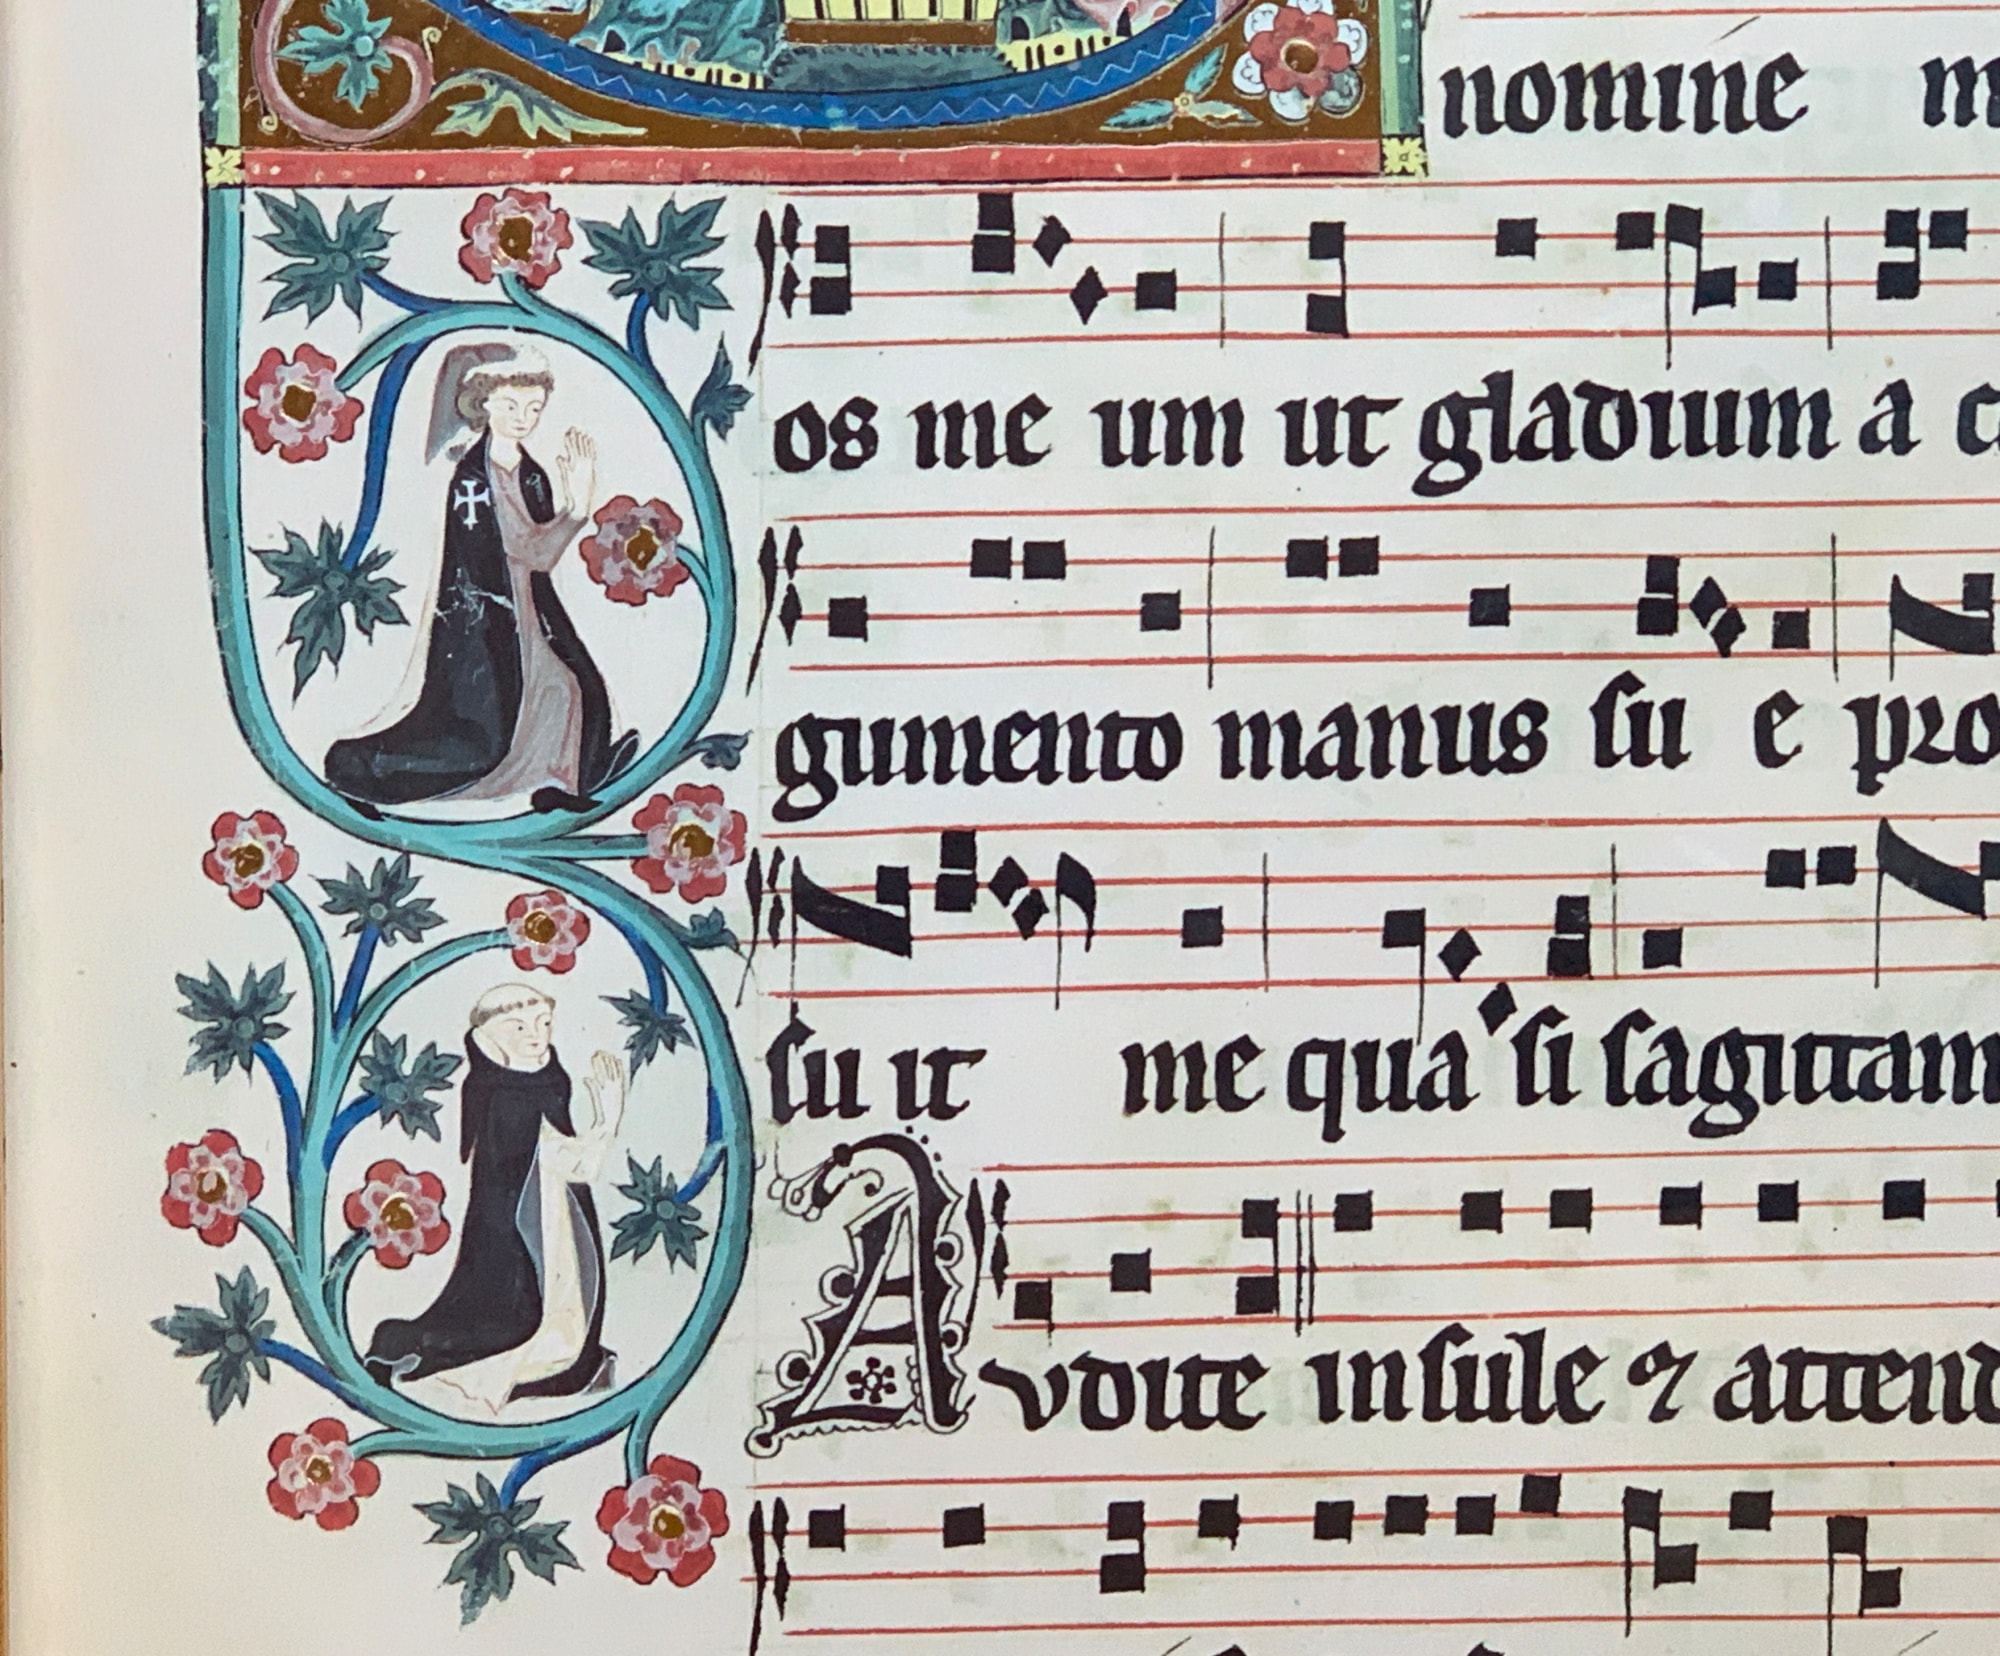 nomine m
os me um ut gladium a c
gumento manus su e pro
su it me qua si sagittam
Avdite insule ⁊ attend